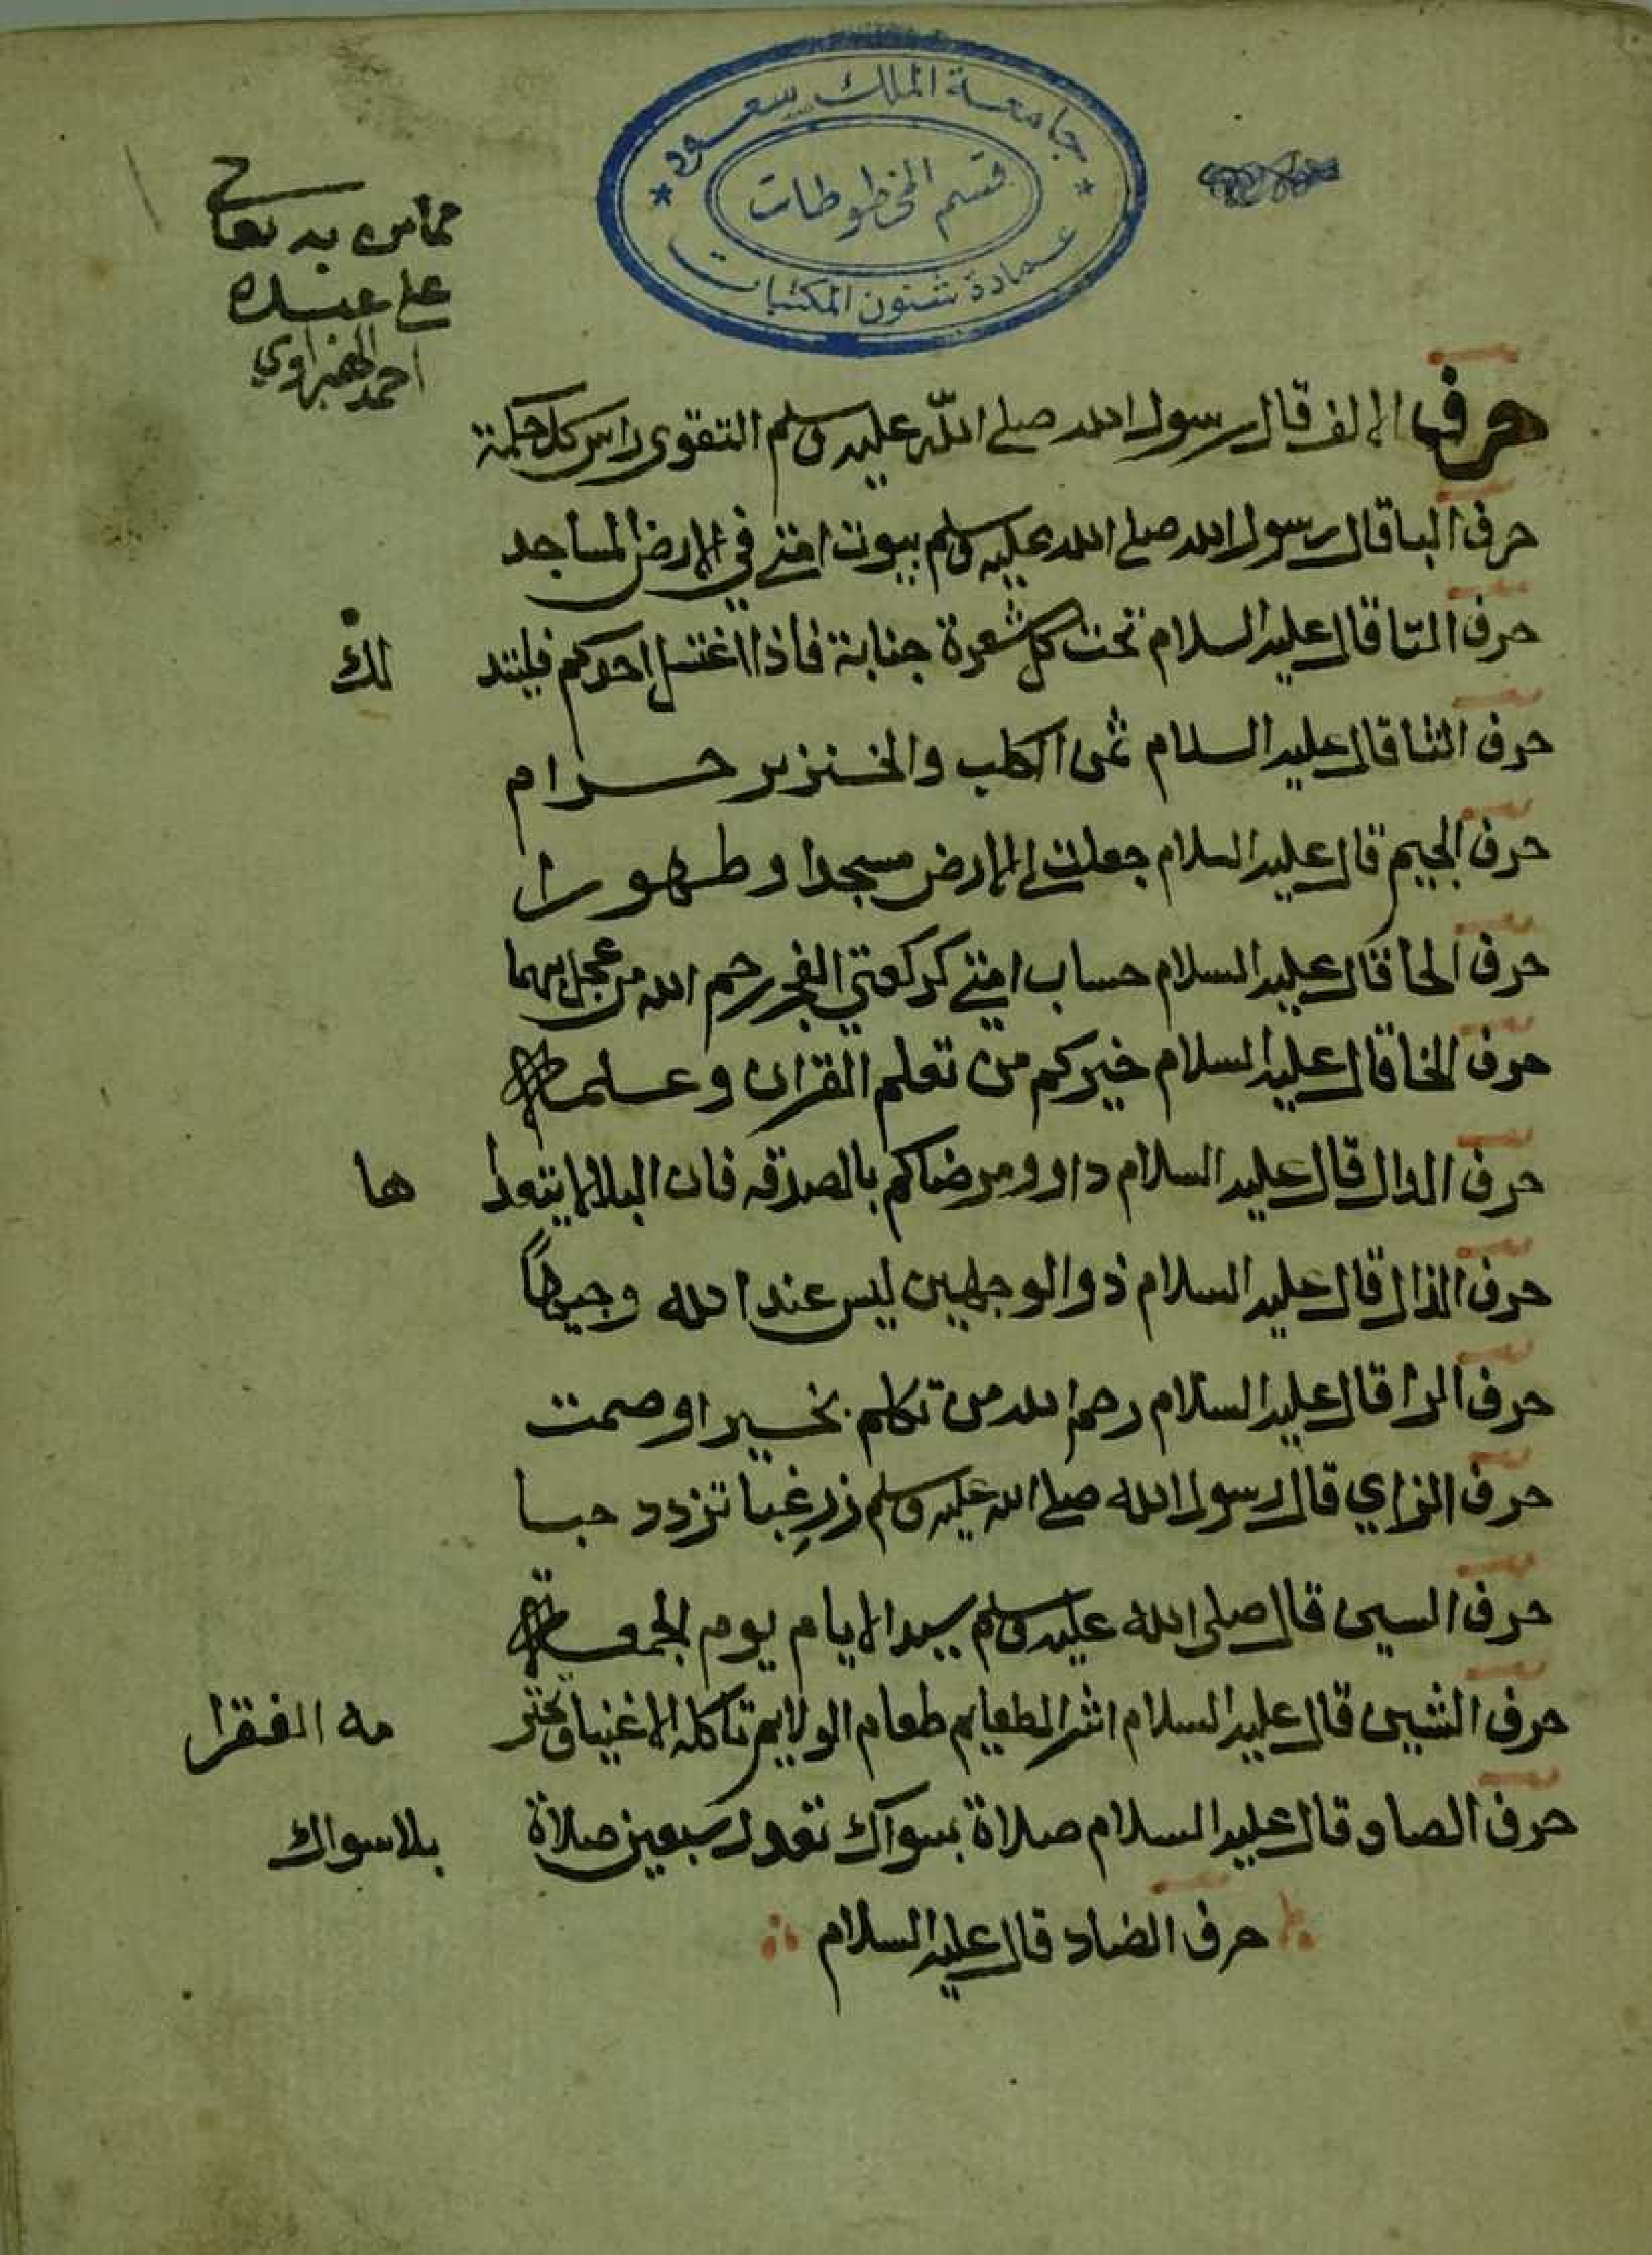 جامعة الملك سعود
قسم المخطوطات
عمادة شئون المكتبات
مما من به تعالى
على عبده
احمد
حرف الالف قال رسول الله صلى الله عليه وسلم التقوى راس كل حكمة
حرف البا قال رسول الله صلى الله عليه وسلم بيوت امتي في الارض المساجد
حرف التا قال عليه السلام تحت كل شعرة جنابة فاذا اغتسل احدكم فليتد لك
حرف الثا قال عليه السلام ثمن الكلب والخنزير حرام
حرف الجيم قال عليه السلام جعلت لي الارض مسجدا وطهورا
حرف الحا قال عليه السلام حساب امتي كركعتي الفجر رحم الله من عجل بهما
حرف الخا قال عليه السلام خيركم من تعلم القران وعلمه
حرف الدال قال عليه السلام داوو مرضاكم بالصدقه فان البلا لا يتعدا ها
حرف الذال قال عليه السلام ذو الوجهين ليس عند الله وجيهاً
حرف الرا قال عليه السلام رحم الله من تكلم بخير او صمت
حرف الزاي قال رسول الله صلى الله عليه وسلم زر غبا تزدد حبا
حرف السين قال صلى الله عليه وسلم سيد الايام يوم الجمعة
حرف الشين قال عليه السلام اشر الطعايم طعام الولايم تاكله الاغنيا وتحتر مه الفقرا
حرف الصاد قال عليه السلام صلاة بسواك تعدل سبعين صلاة بلا سواك
حرف الضاد قال عليه السلام